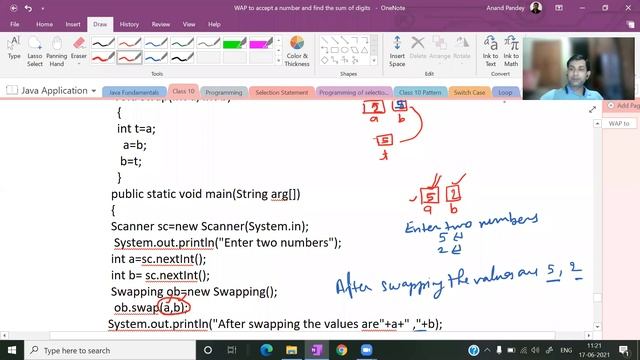 WAP to accept a number and find the sum of digits - OneNote
Anand Pandey
File Home Insert Draw View Help
Type
Lasso Select
Panning Hand
Tools
Color & Thickness
Shapes
Ink to Text
Ink to Math
Convert
Java Application
Java Fundamentals Class 10 Programming Selection Statement Programming of selectio... Class 10 Pattern Switch Case Loop
Add Page
WAP to
{
int t=a;
a=b;
b=t;
}
public static void main(String arg[])
{
Scanner sc=new Scanner(System.in);
System.out.println("Enter two numbers");
int a=sc.nextInt();
int b= sc.nextInt();
Swapping ob=new Swapping();
ob.swap(a,b);
System.out.println("After swapping the values are"+a+" ,"+b);
2 5
a b
5
t
5 2
a b
Enter two numbers
5
2
After swapping the values are 5, 2
ENG
11:21
17-06-2021